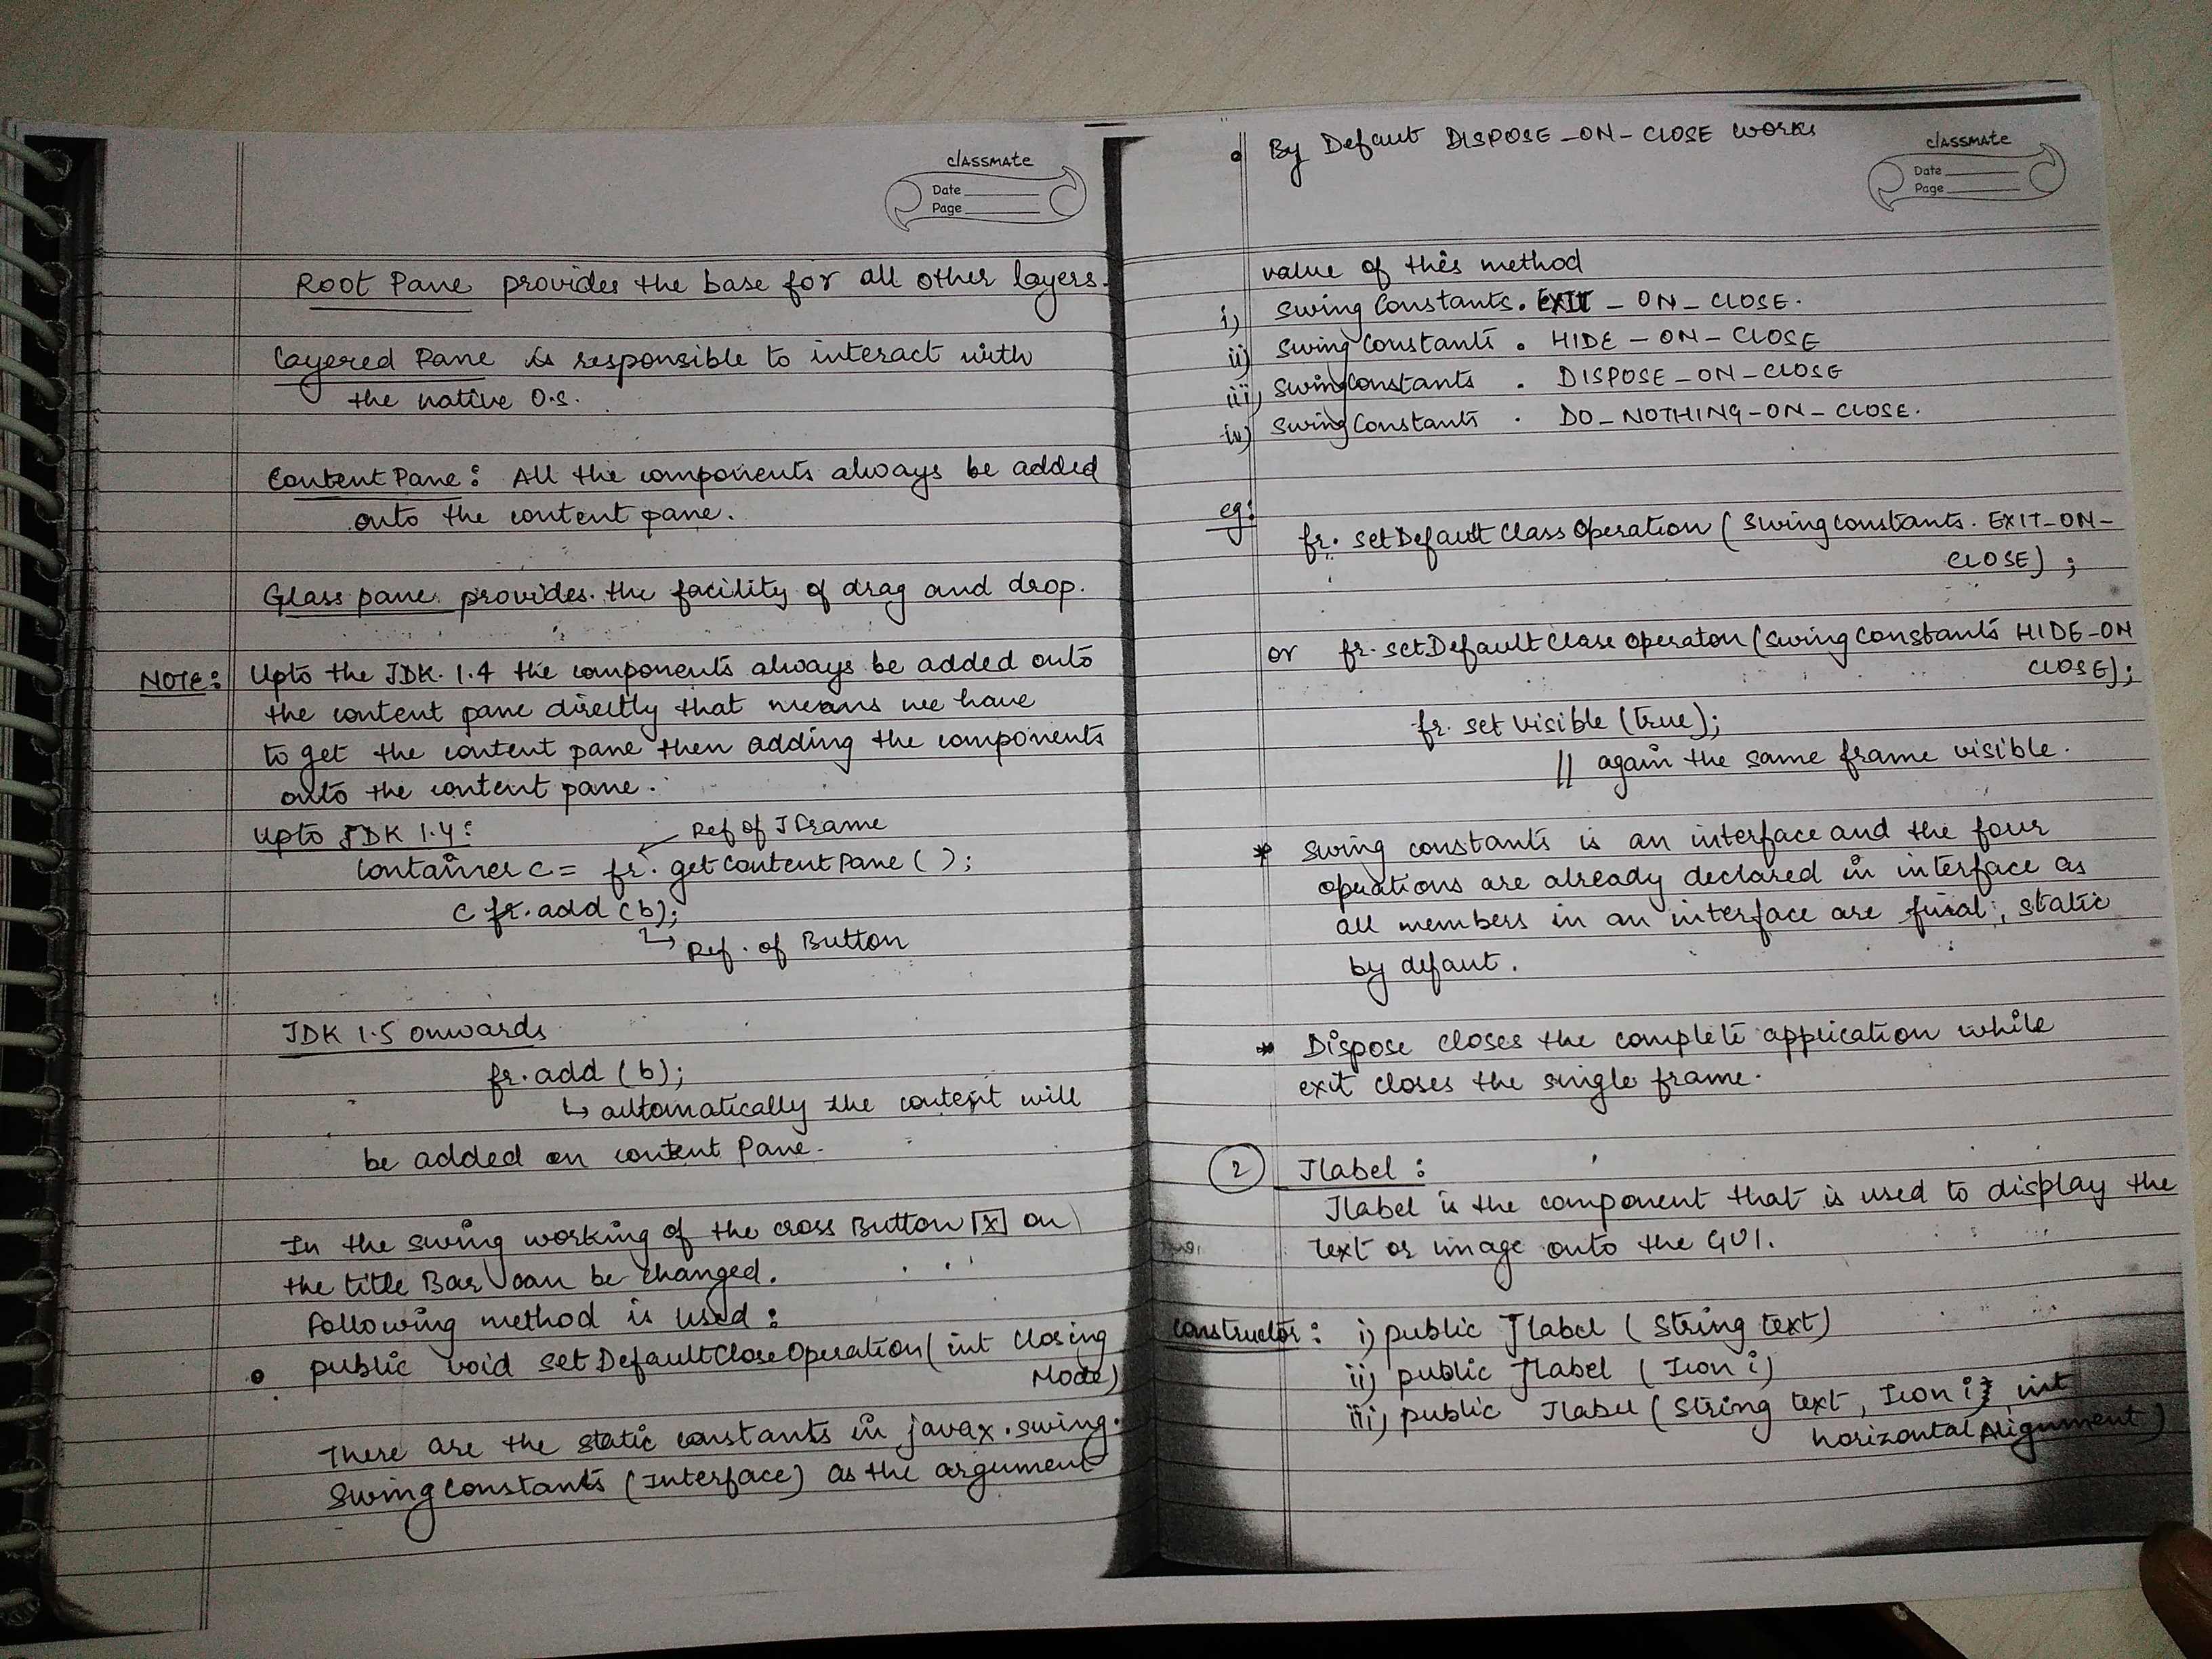 classmate
Date
Page
Root Pane provides the base for all other layers.
Layered Pane is responsible to interact with
the native O.S.
Content Pane: All the components always be added
onto the content pane.
Glass pane provides the facility of drag and drop.
NOTE: Upto the JDK 1.4 the components always be added onto
the content pane directly that means we have
to get the content pane then adding the components
onto the content pane.
Upto JDK 1.4:
Ref of JFrame
Container c = fr. getContentPane ( );
c fr. add (b);
Ref. of Button
JDK 1.5 onwards
fr. add (b);
↳ automatically the content will
be added on content Pane.
In the swing working of the cross Button [X] on
the title Bar can be changed.
Following method is used:
• public void setDefaultCloseOperation( int Closing
Mode)
There are the static constants in javax.swing.
SwingConstants (Interface) as the argument
• By Defaut DISPOSE_ON_CLOSE works
classmate
Date
Page
value of this method
i) Swing Constants. EXIT _ ON _ CLOSE.
ii) Swing Constants . HIDE _ ON _ CLOSE
iii) SwingConstants . DISPOSE _ ON _ CLOSE
iv) SwingConstants . DO _ NOTHING _ ON _ CLOSE.
eg:
fr. setDefault Class Operation ( Swingconstants. EXIT_ON_
CLOSE) ;
or fr. setDefault Close Operaton (Swing Constants HIDE_ON
CLOSE);
fr. set Visible (true);
// again the same frame visible.
* Swing constants is an interface and the four
operations are already declared in interface as
all members in an interface are final, static
by defaut.
* Dispose closes the complete application while
exit closes the single frame.
2 Jlabel :
Jlabel is the component that is used to display the
text or image onto the GUI.
Constructor: i) public Jlabel ( String text)
ii) public Jlabel ( Icon i)
iii) public Jlabel ( String text, Icon i, int
horizontal Alignment)